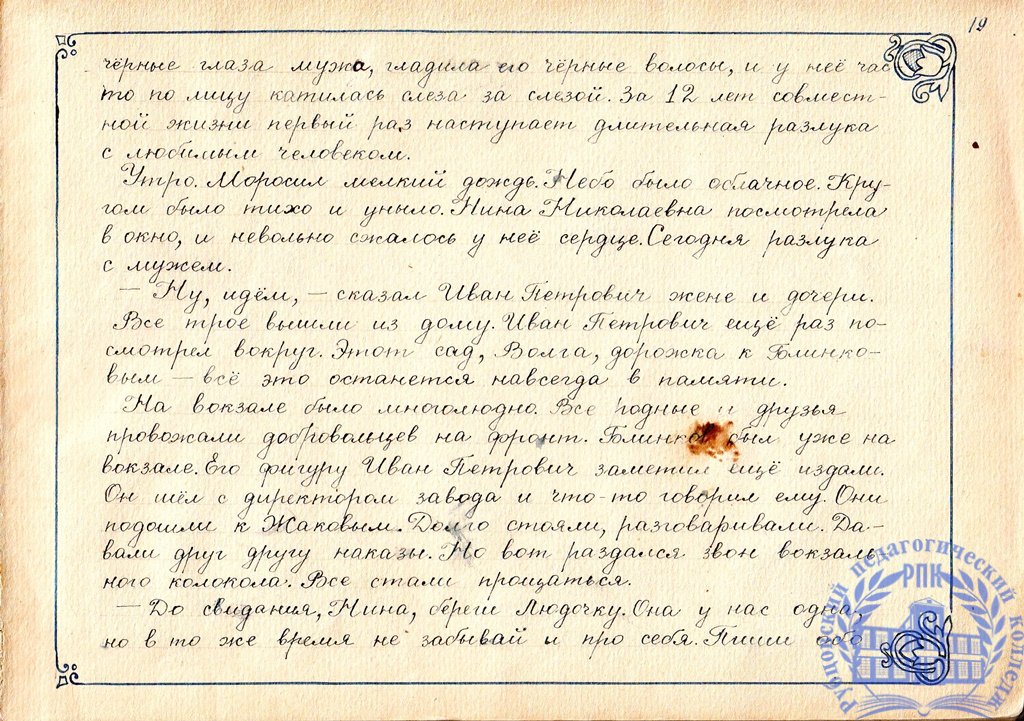 19
чёрные глаза мужа, гладила его чёрные волосы, и у неё час
то по лицу катилась слеза за слезой. За 12 лет совмест-
ной жизни первый раз наступает длительная разлука
с любимым человеком.
Утро. Моросил мелкий дождь. Небо было облачное. Кру-
гом было тихо и уныло. Нина Николаевна посмотрела
в окно, и невольно сжалось у неё сердце. Сегодня разлука
с мужем.
— Ну, идём, — сказал Иван Петрович жене и дочери.
Все трое вышли из дому. Иван Петрович ещё раз по-
смотрел вокруг. Этот сад, Волга, дорожка к Голинко-
вым — всё это останется навсегда в памяти.
На вокзале было многолюдно. Все родные и друзья
провожали добровольцев на фронт. Голинков был уже на
вокзале. Его фигуру Иван Петрович заметил ещё издали.
Он шёл с директором завода и что-то говорил ему. Они
подошли к Жаковым. Долго стояли, разговаривали. Да-
вали друг другу наказы. Но вот раздался звон вокзаль
ного колокола. Все стали прощаться.
— До свидания, Нина, береги Людочку. Она у нас одна,
но в то же время не забывай и про себя. Пиши обо
Рубцовский педагогический колледж
РПК